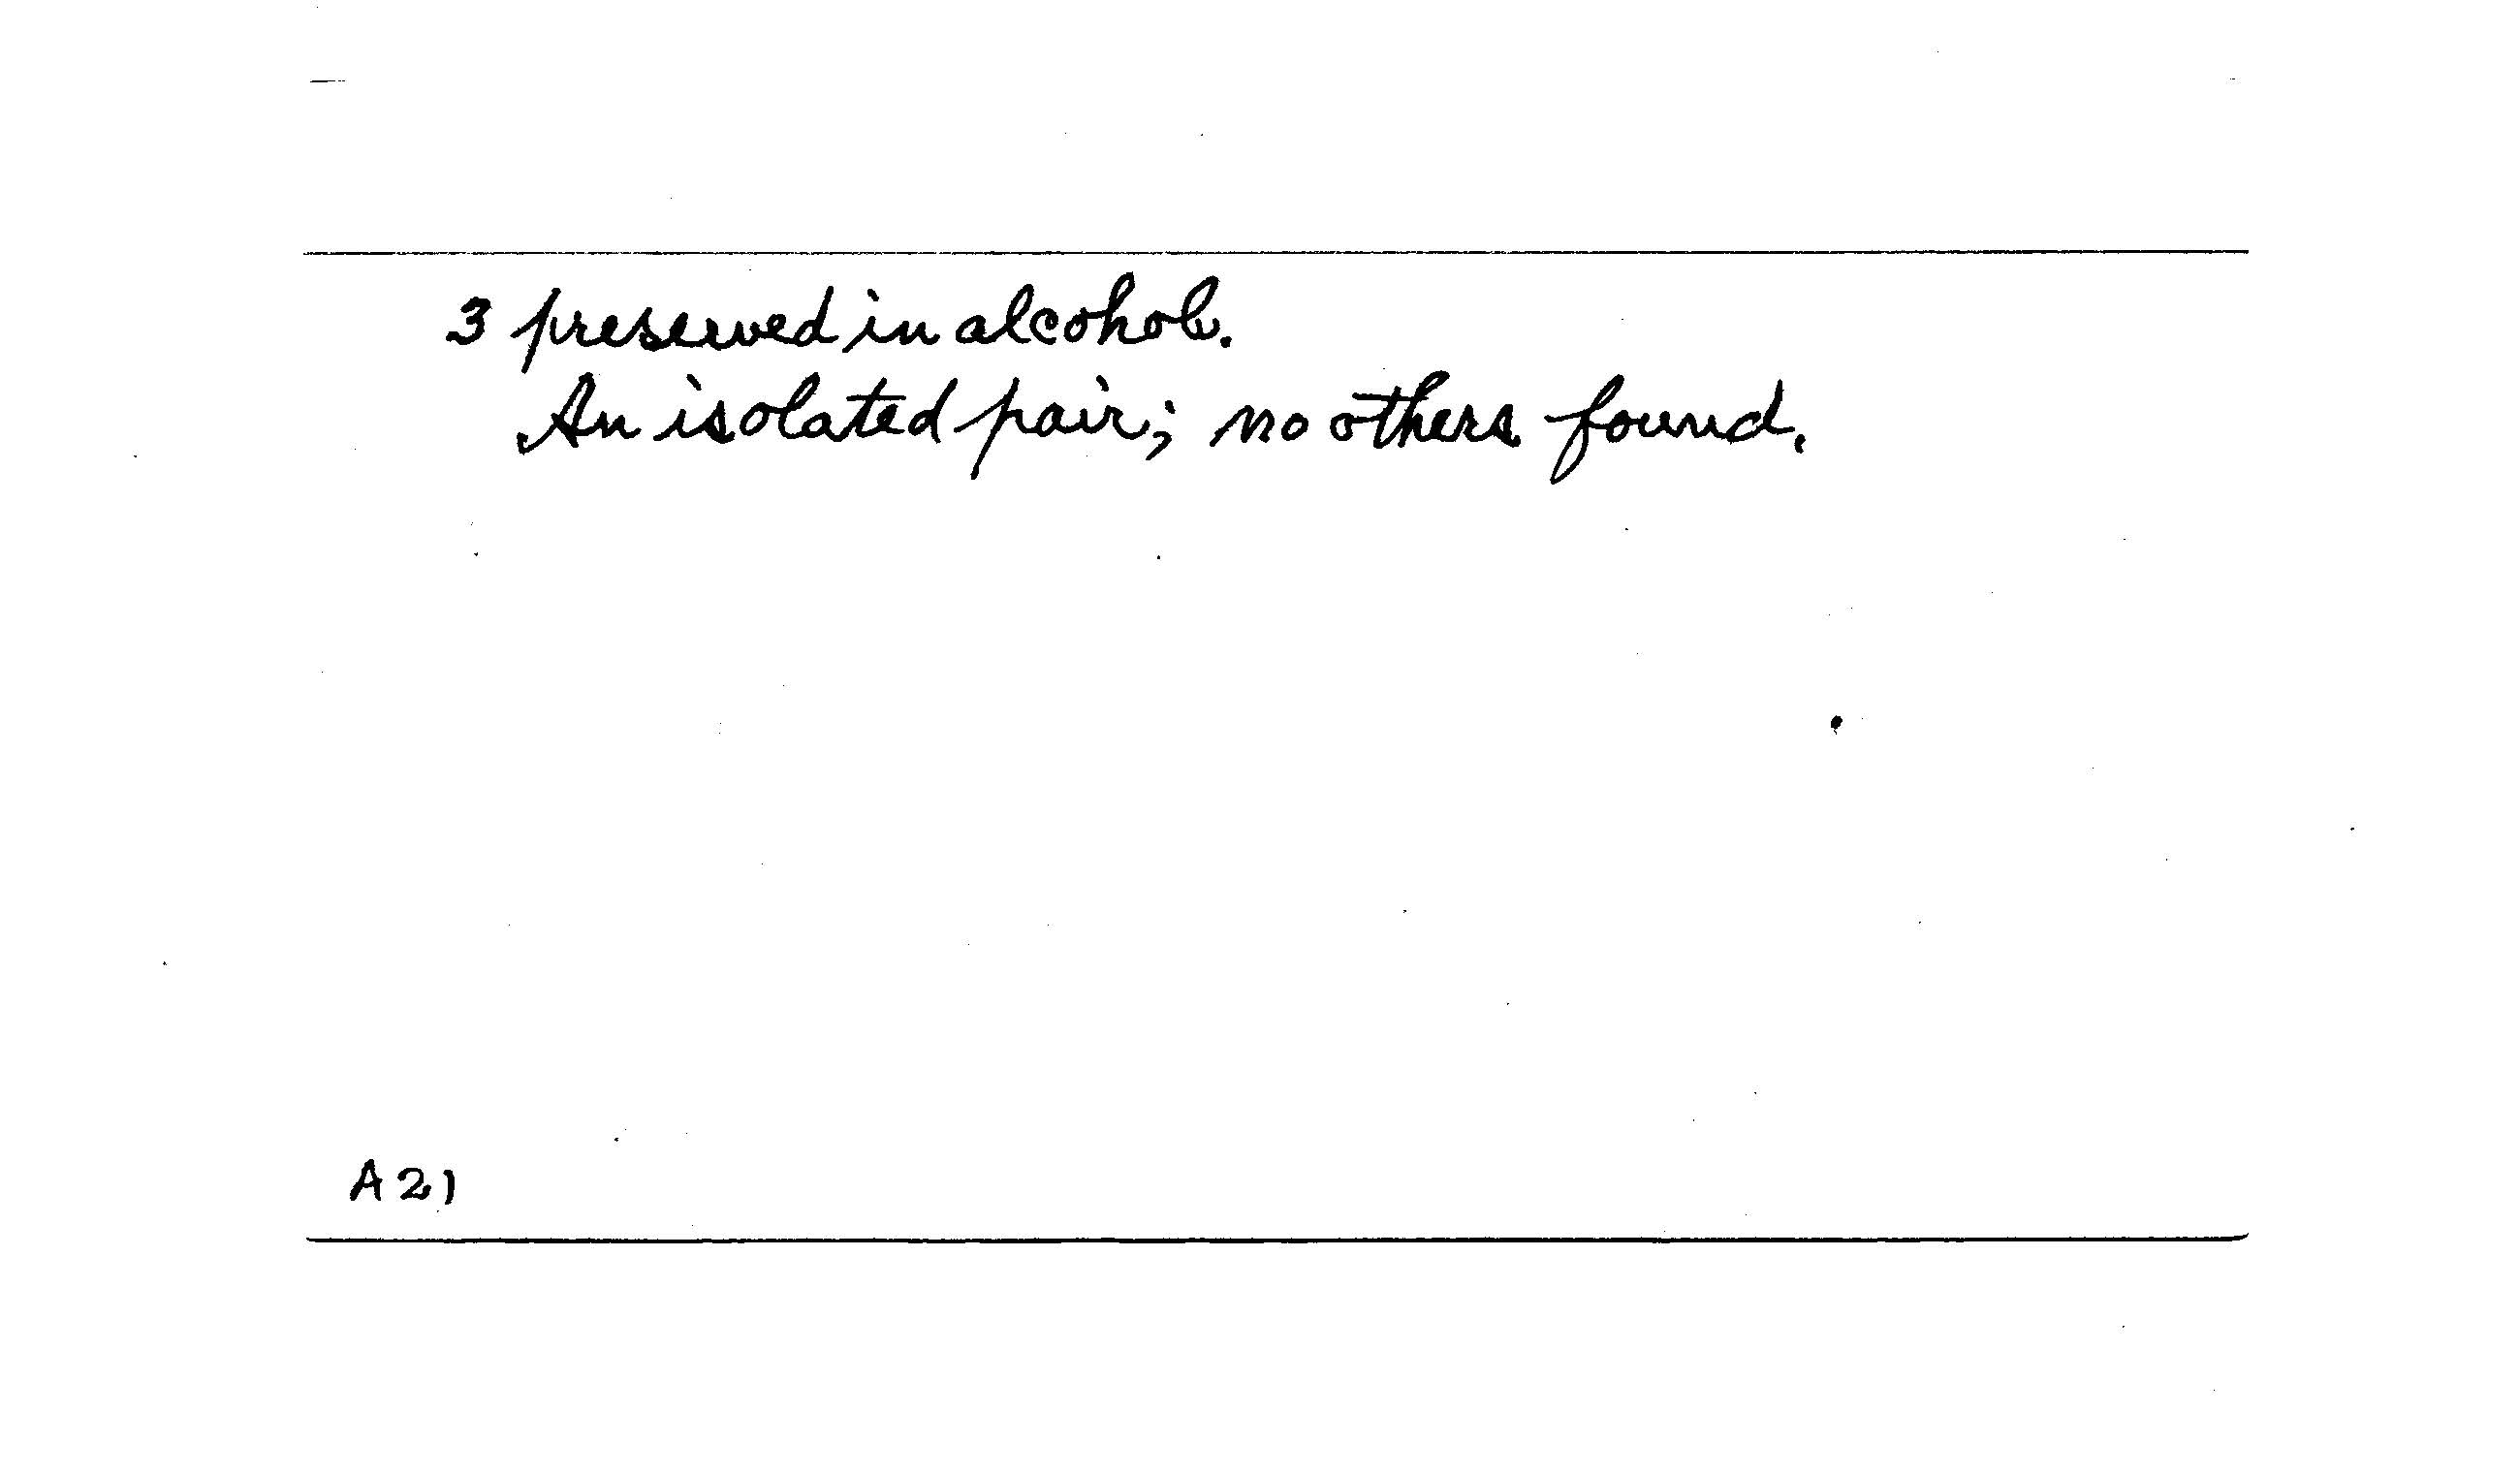 3 preserved in alcohol.
An isolated pair; no others found.
A21